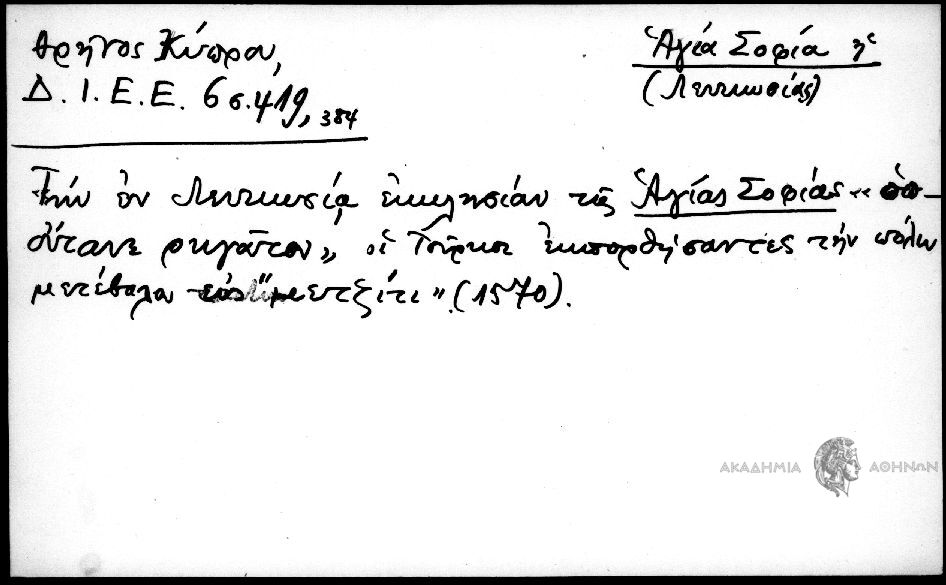 Θρῆνος Κύπρου,
Δ. Ι. Ε. Ε. 6 σ. 419, 384
Ἁγία Σοφία ἡ
(Λευκωσίας)
Τὴν ἐν Λευκωσίᾳ ἐκκλησίαν τῆς Ἁγίας Σοφίας «ὁπ-
οὔτανε ρηγᾶτον», οἱ Τοῦρκοι ἐκπορθήσαντες τὴν πόλιν
μετέβαλον "μετζίτι" (1570).
ΑΚΑΔΗΜΙΑ ΑΘΗΝΩΝ